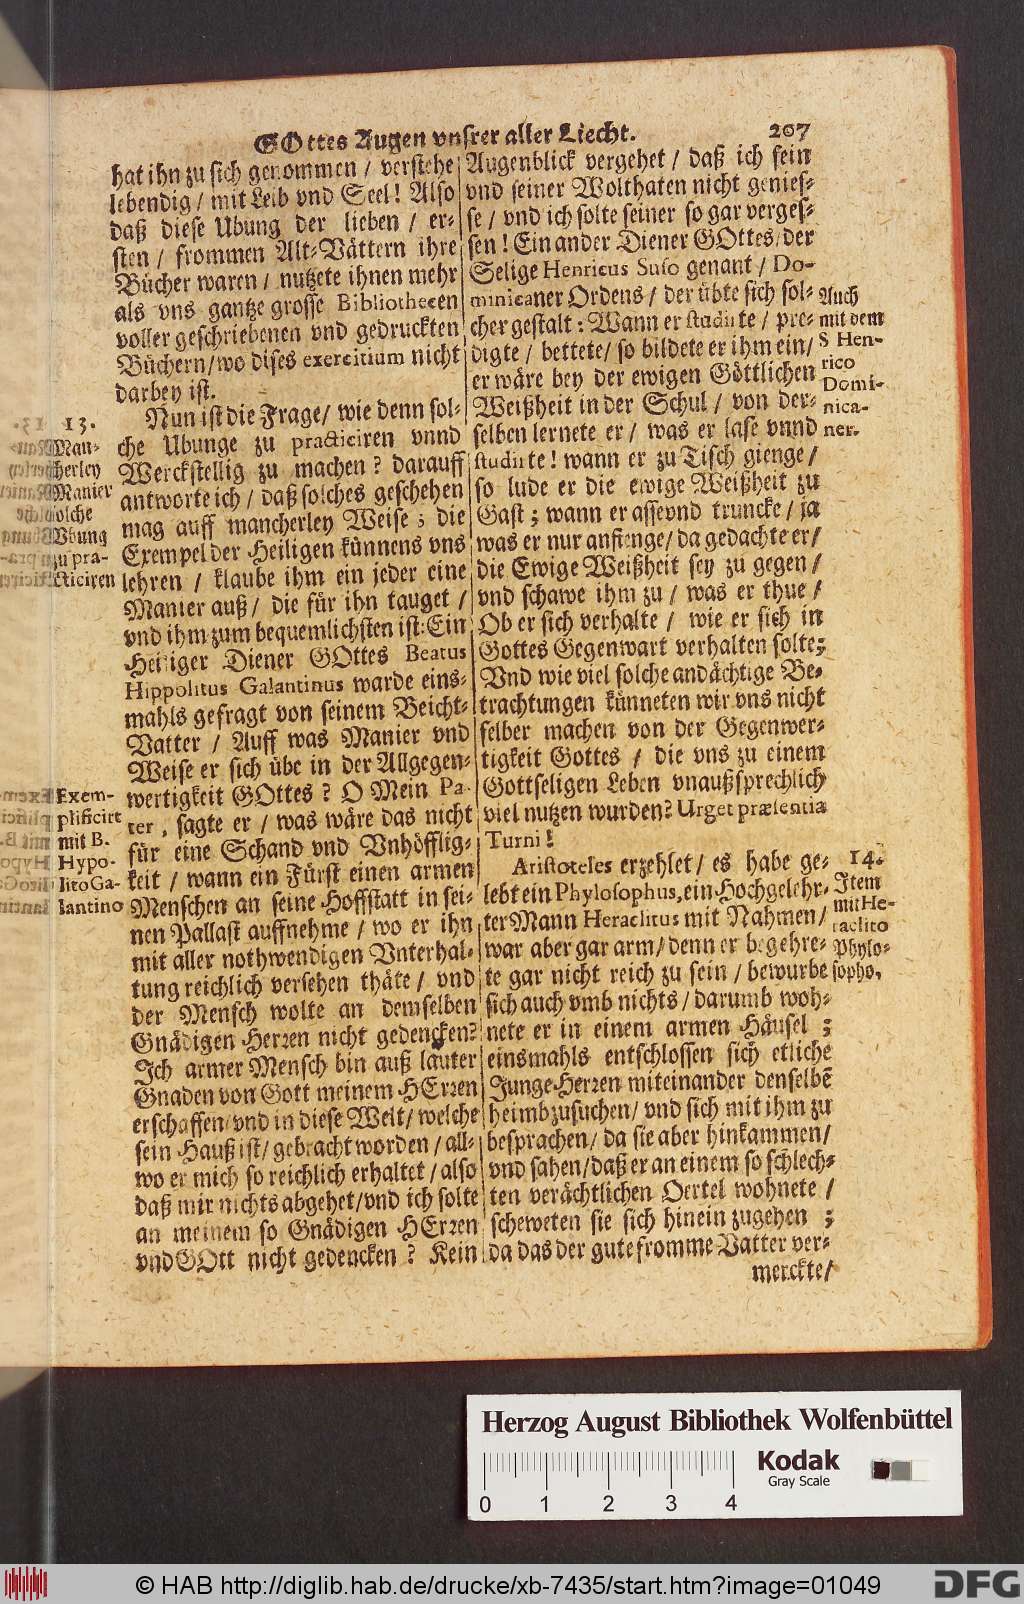 GOttes Augen vnsrer aller Liecht. 207
hat ihn zu sich genommen / verstehe
lebendig / mit Leib vnd Seel! Also
daß diese Ubung der lieben / er-
sten / frommen Alt-Vättern ihre
Bücher waren / nutzete ihnen mehr
als vns gantze grosse Bibliothecen
voller geschriebenen vnd gedruckten
Büchern / wo dises exercitium nicht
darbey ist.
Nun ist die Frage / wie denn sol-
che Ubunge zu practiciren vnnd
Werckstellig zu machen? darauff
antworte ich / daß solches geschehen
mag auff mancherley Weise; die
Exempel der Heiligen künnens vns
lehren / klaube ihm ein jeder eine
Manier auß / die für ihn tauget /
vnd ihm zum bequemlichsten ist: Ein
Heiliger Diener GOttes Beatus
Hippolitus Galantinus warde eins-
mahls gefragt von seinem Beicht-
Vatter / Auff was Manier vnd
Weise er sich übe in der Allgegen-
wertigkeit GOttes? O Mein Pa-
ter, sagte er / was wäre das nicht
für eine Schand vnd Vnhöfflig-
keit / wann ein Fürst einen armen
Menschen an seine Hoffstatt in sei-
nen Pallast auffnehme / wo er ihn
mit aller nothwendigen Vnterhal-
tung reichlich versehen thäte / vnd
der Mensch wolte an demselben
Gnädigen Herren nicht gedencken?
Ich armer Mensch bin auß lauter
Gnaden von Gott meinem HErren
erschaffen / vnd in diese Welt / welche
sein Hauß ist / gebracht worden / all-
wo er mich so reichlich erhaltet / also
daß mir nichts abgehet / vnd ich solte
an meinem so Gnädigen HErren
vnd GOtt nicht gedencken? Kein
13.
Man-
cherley
Manier
solche
Vbung
zu pra-
cticiren
Exem-
plificirt
mit B.
Hypo-
lito Ga-
lantino
Augenblick vergehet / daß ich sein
vnd seiner Wolthaten nicht genies-
se / vnd ich solte seiner so gar verges-
sen! Ein ander Diener GOttes / der
Selige Henricus Suso genant / Do-
minicaner Ordens / der übte sich sol-
cher gestalt: Wann er studirte / pre-
digte / bettete / so bildete er ihm ein /
er wäre bey der ewigen Göttlichen
Weißheit in der Schul / von der-
selben lernete er / was er lase vnnd
studirte! wann er zu Tisch gienge /
so lude er die ewige Weißheit zu
Gast; wann er asse vnd truncke / ja
was er nur anfienge / da gedachte er /
die Ewige Weißheit sey zu gegen /
vnd schawe ihm zu / was er thue /
Ob er sich verhalte / wie er sich in
Gottes Gegenwart verhalten solte;
Vnd wie viel solche andächtige Be-
trachtungen künneten wir vns nicht
selber machen von der Gegenwer-
tigkeit Gottes / die vns zu einem
Gottseligen Leben vnaußsprechlich
viel nutzen wurden? Urget præsentia
Turni!
Aristoteles erzehlet / es habe ge-
lebt ein Phylosophus, ein Hochgelehr-
ter Mann Heraclitus mit Nahmen /
war aber gar arm / denn er begehre-
te gar nicht reich zu sein / bewurbe
sich auch vmb nichts / darumb woh-
nete er in einem armen Häusel;
einsmahls entschlossen sich etliche
Junge Herren miteinander denselbẽ
heimbzusuchen / vnd sich mit ihm zu
besprachen / da sie aber hinkammen /
vnd sahen / daß er an einem so schlech-
ten verächtlichen Oertel wohnete /
scheweten sie sich hinein zugehen;
da das der gute fromme Vatter ver-
merckte /
Auch
mit dem
S Hen-
rico
Domi-
nica-
ner.
14.
Item
mit He-
raclito
Phylo-
sopho,
Herzog August Bibliothek Wolfenbüttel
Kodak
Gray Scale
0 1 2 3 4
© HAB http://diglib.hab.de/drucke/xb-7435/start.htm?image=01049
DFG